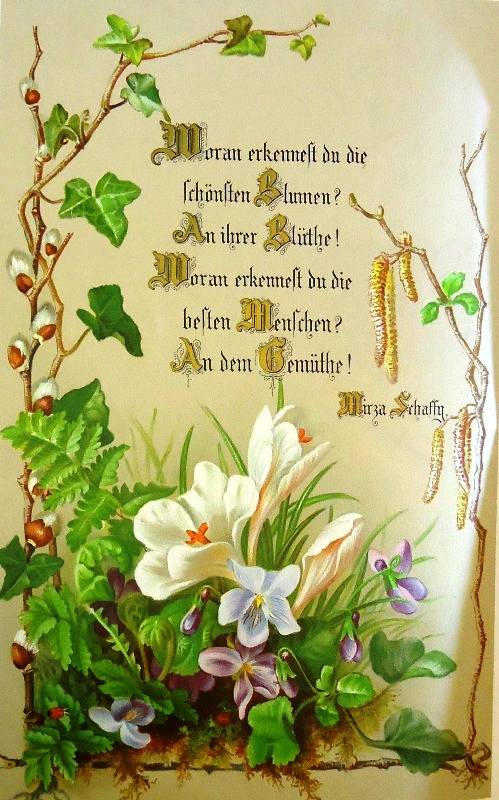 Woran erkennest du die
schönsten Blumen?
An ihrer Blüthe!
Woran erkennest du die
besten Menschen?
An dem Gemüthe!
Mirza Schaffy.